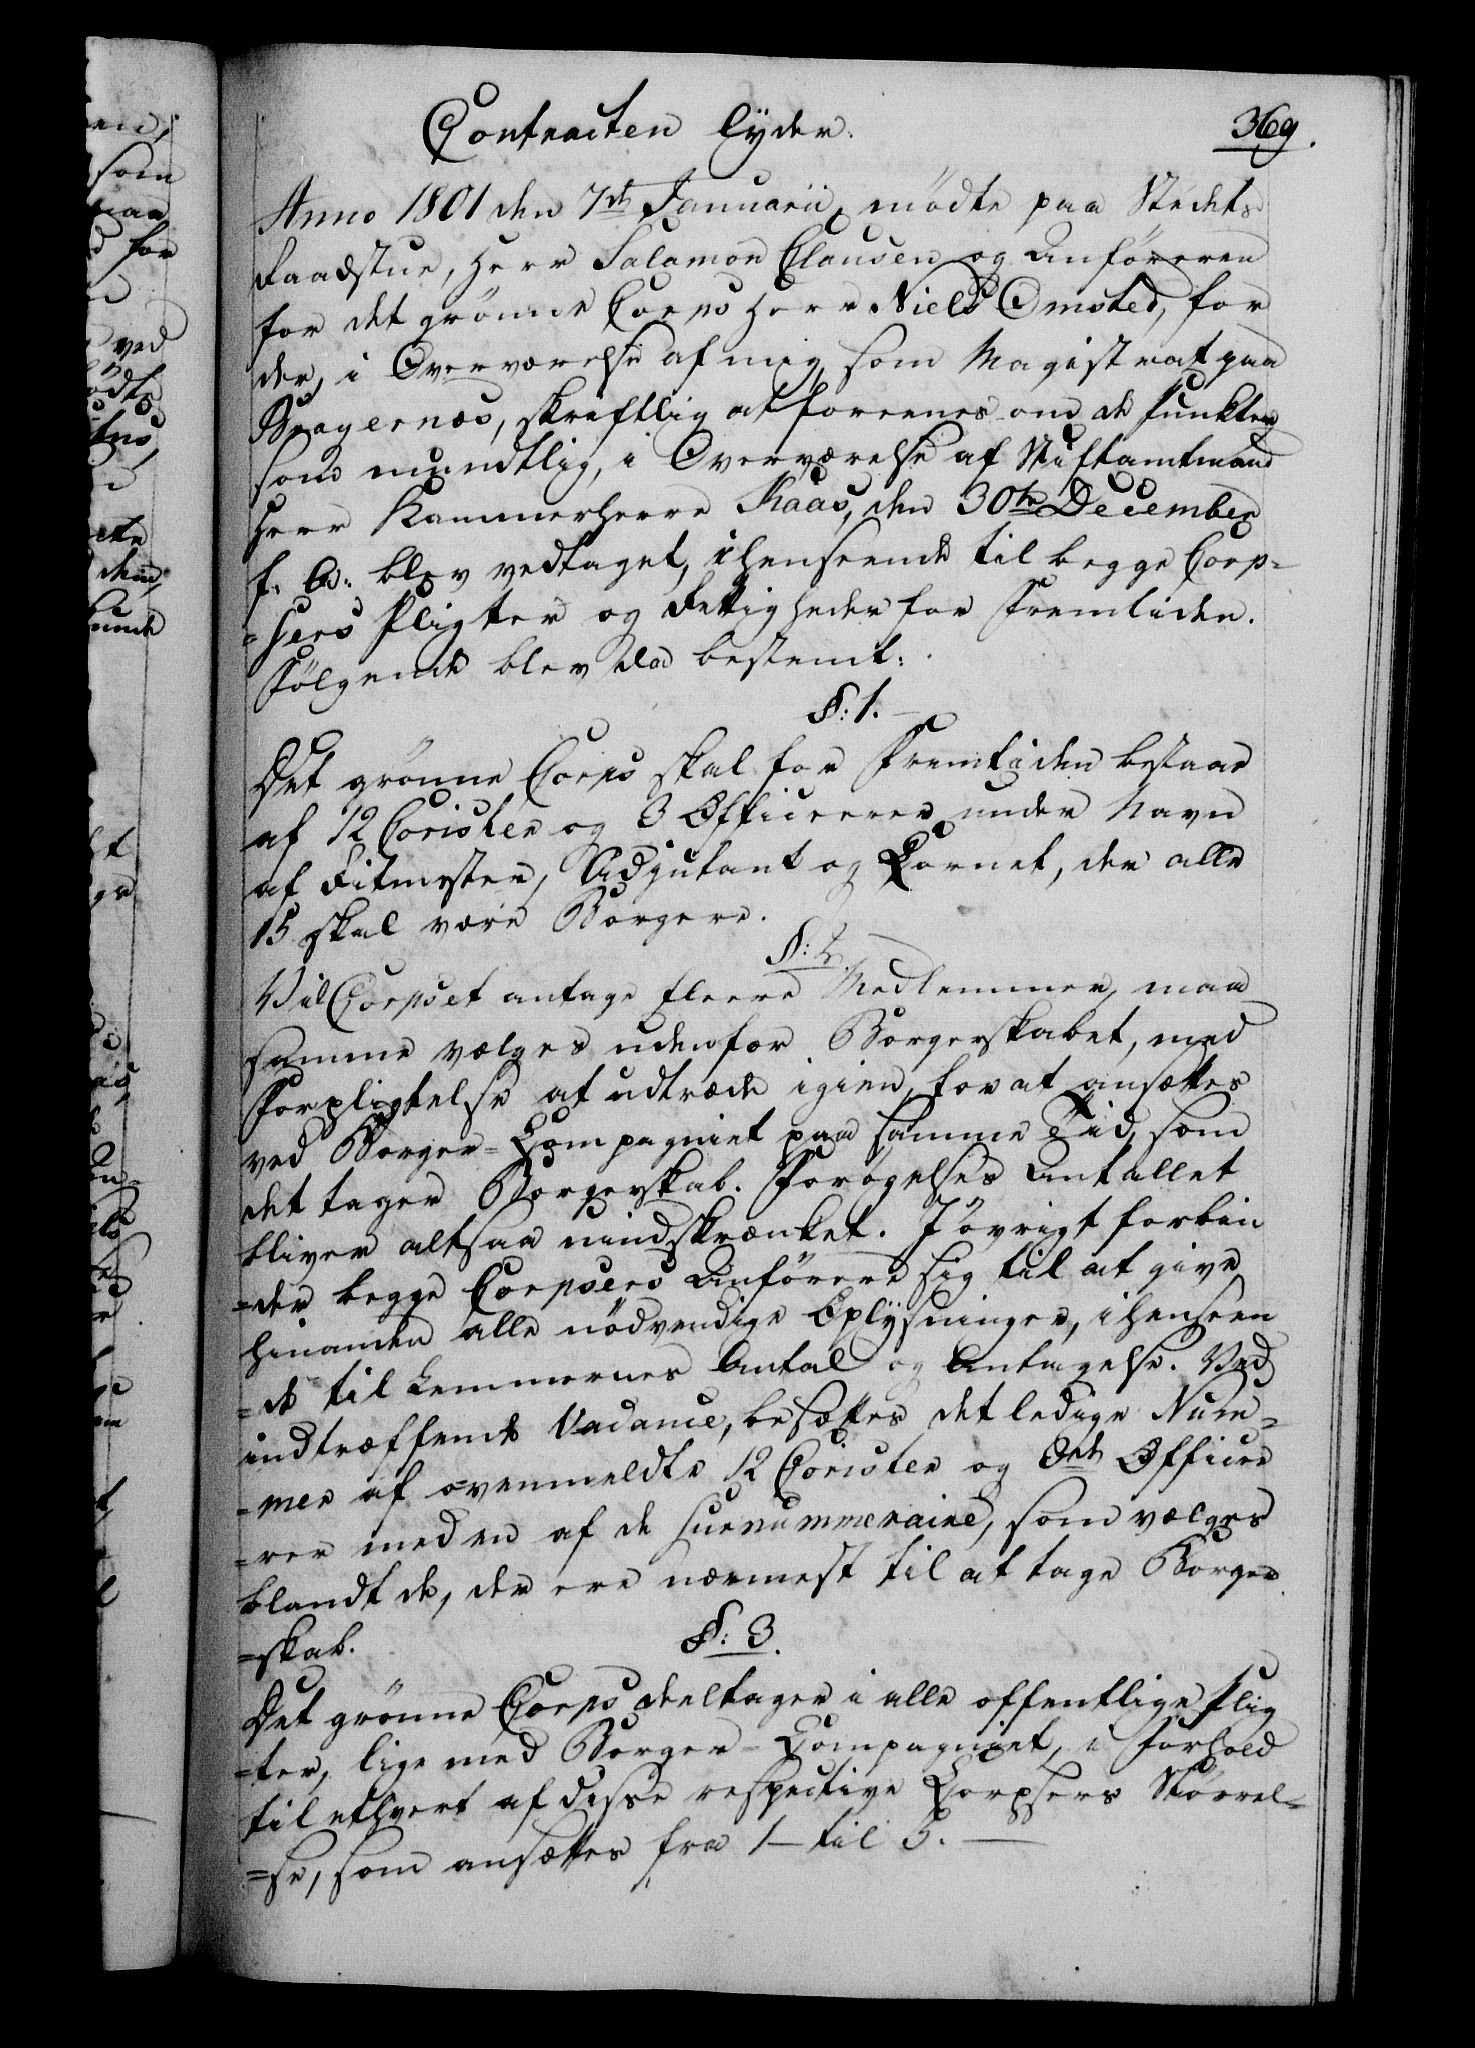 Contracten lyder.
369.
Anno 1801 den 7de Januarii, mödte paa Stedets
Raadstue, Herr Salamon Clausen og Anföreren
for det grönne Corps Herr Niels Omsted, for
der, i Overværelse af mig, som Magistrat paa
Bragernæs, skriftlig at foreenes om de Punkter
som mundtlig, i Overværelse af Stiftamtmand
Herr Kammerherre Kaas, den 30te December
f. A: blev vedtaget, i henseende til begge Corp-
=sers Pligter og Rettigheder for Fremtiden.
Fölgende blev da bestemt:
§: 1.
Det grönne Corps skal for Fremtiden bestaae
af 12 Corister og 3 Officerer under Navn
af Ritmester, Adjutant og Cornet, der alle
15 skal være Borgere.
§: 2.
Vil Corpset antage fleere Medlemmer, maa
samme vælges udenfor Borgerskabet, med
Forpligtelse at udtræde igien, for at ansættes
ved Borger-Compagniet paa samme Tid, som
det tager Borgerskab. Forögelses Antallet
bliver altsaa uindskrænket. I övrigt forbin
=der begge Corpsers Anförere sig til at give
hinanden alle nödvendige Oplysninger, i henseen
=de til Lemmernes Antal og Antagelse. Ved
indtræffende Vacance, besættes det ledige Num-
=mer af ovenmeldte 12 Corister og 3de Office
=rer med en af de surnummeraire, som vælges
blandt de, der ere nærmest til at tage Borger
=skab.
§: 3.
Det grönne Corps deeltager i alle offentlige Plig
=ter, lige med Borger-Compagniet, i Forhold
til ethvert af disse respective Corpsers Störrel-
=se, som ansættes fra 1 til 5.